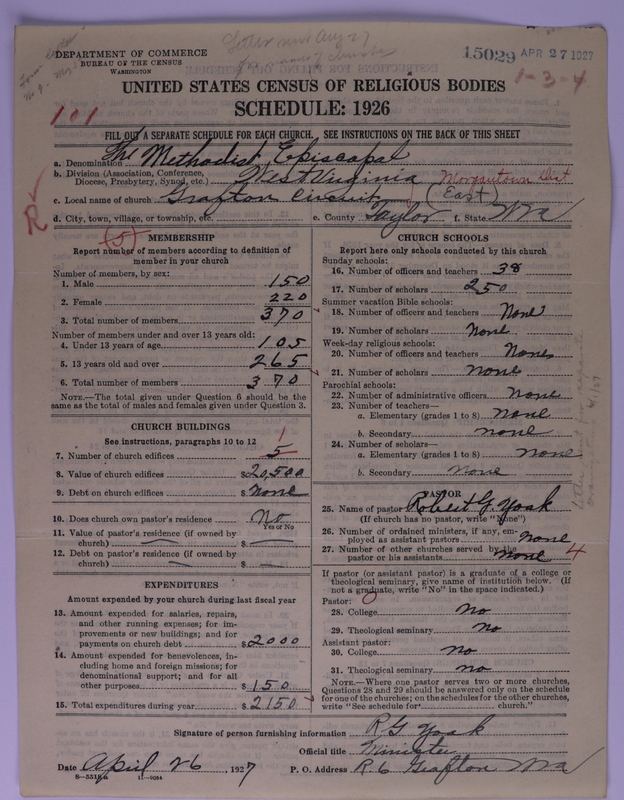 DEPARTMENT OF COMMERCE
BUREAU OF THE CENSUS
WASHINGTON
Letter sent Aug 27
15029 APR 27 1927
1-3-4
UNITED STATES CENSUS OF RELIGIOUS BODIES
SCHEDULE: 1926
101
FILL OUT A SEPARATE SCHEDULE FOR EACH CHURCH. SEE INSTRUCTIONS ON THE BACK OF THIS SHEET
a. Denomination The Methodist Episcopal
b. Division (Association, Conference, Diocese, Presbytery, Synod, etc.) West Virginia Morgantown Dist
c. Local name of church Grafton Circuit (East)
d. City, town, village, or township, etc. e. County Taylor f. State W Va
R
(5)
MEMBERSHIP
Report number of members according to definition of
member in your church
Number of members, by sex:
1. Male 150
2. Female 220
3. Total number of members 370
Number of members under and over 13 years old:
4. Under 13 years of age 105
5. 13 years old and over 265
6. Total number of members 370
NOTE.—The total given under Question 6 should be
same as the total of males and females given under Question 3.
CHURCH BUILDINGS
See instructions, paragraphs 10 to 12
7. Number of church edifices 5 1
8. Value of church edifices $20,500
9. Debt on church edifices $None
10. Does church own pastor's residence No
Yes or No
11. Value of pastor's residence (if owned by
church) — $ —
12. Debt on pastor's residence (if owned by
church) — $ —
EXPENDITURES
Amount expended by your church during last fiscal year
13. Amount expended for salaries, repairs,
and other running expenses; for im-
provements or new buildings; and for
payments on church debt $2000
14. Amount expended for benevolences, in-
cluding home and foreign missions; for
denominational support; and for all
other purposes $150
15. Total expenditures during year $2150
CHURCH SCHOOLS
Report here only schools conducted by this church
Sunday schools:
16. Number of officers and teachers 38
17. Number of scholars 250
Summer vacation Bible schools:
18. Number of officers and teachers None
19. Number of scholars None
Week-day religious schools:
20. Number of officers and teachers None
21. Number of scholars None
Parochial schools:
22. Number of administrative officers None
23. Number of teachers—
a. Elementary (grades 1 to 8) None
b. Secondary None
24. Number of scholars—
a. Elementary (grades 1 to 8) None
b. Secondary None
PASTOR
25. Name of pastor Robert G. Yoak
(If church has no pastor, write "None")
26. Number of ordained ministers, if any, em-
ployed as assistant pastors None
27. Number of other churches served by the
pastor or his assistants None 4
If pastor (or assistant pastor) is a graduate of a college or
theological seminary, give name of institution below. (If
not a graduate, write "No" in the space indicated.)
Pastor:
28. College No
29. Theological seminary No
Assistant pastor:
30. College No
31. Theological seminary No
NOTE.—Where one pastor serves two or more churches,
Questions 28 and 29 should be answered only on the schedule
for one of the churches; on the schedules for the other churches,
write "See schedule for church.
Signature of person furnishing information R G Yoak
Official title Minister
Date April 26, 1927 P. O. Address R 6 Grafton W Va
8—5518a 11—9084